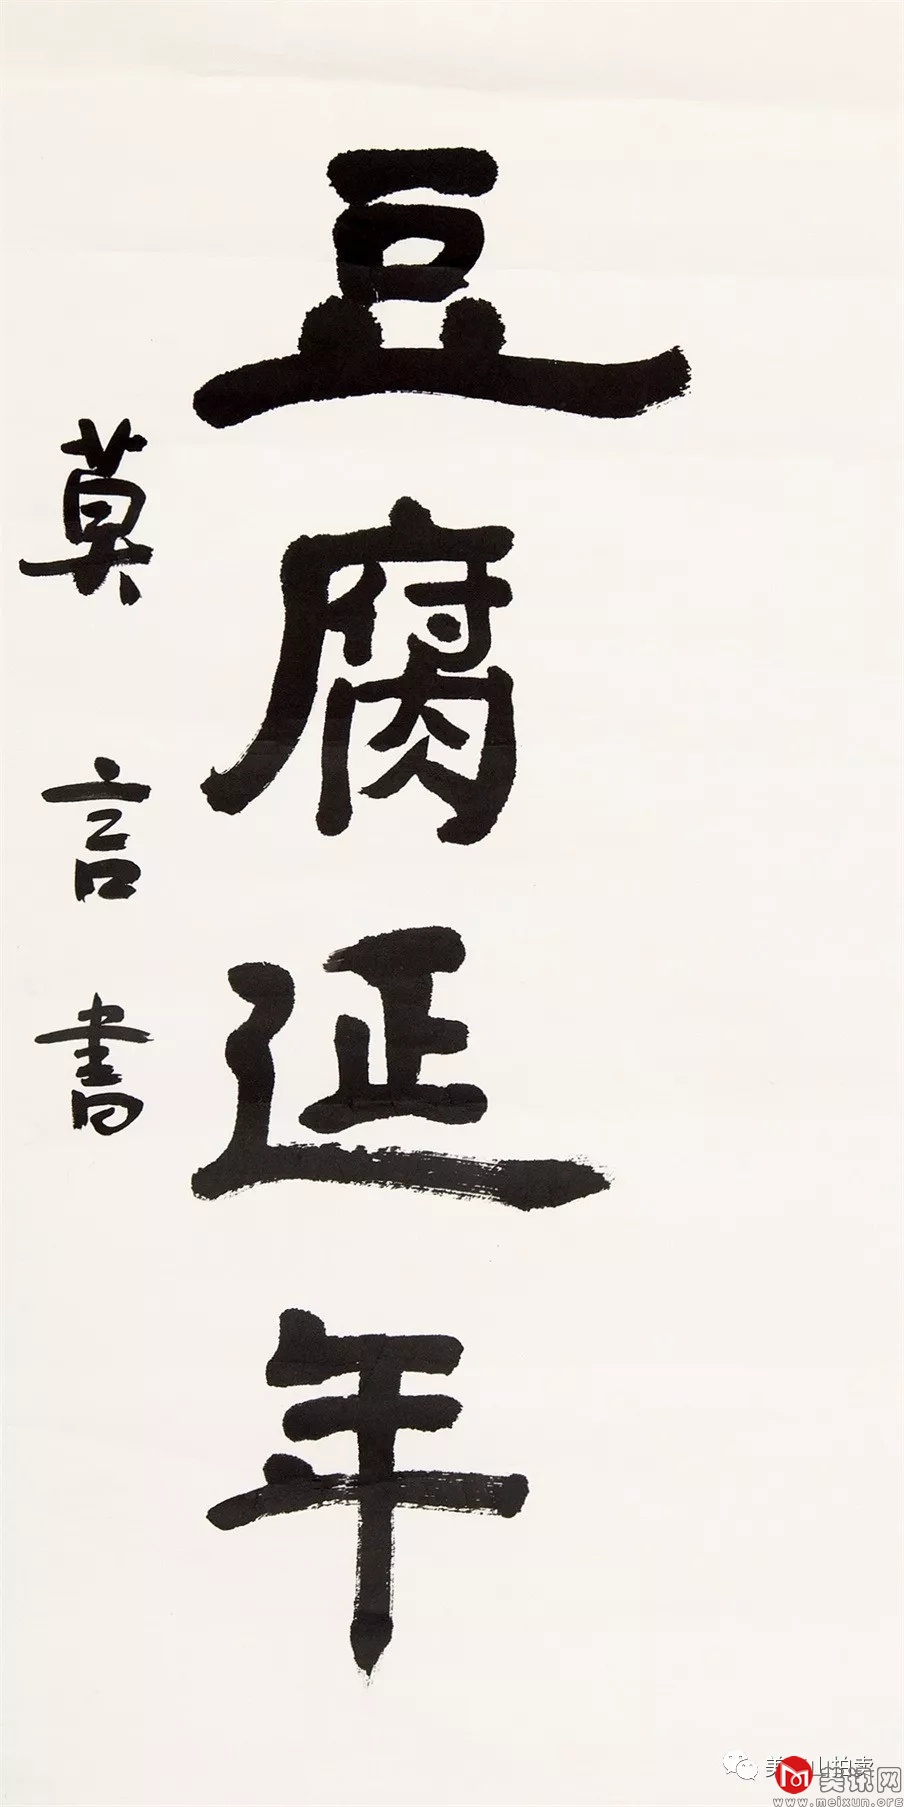 豆腐延年
莫言書
美讯网
www.meixun.org